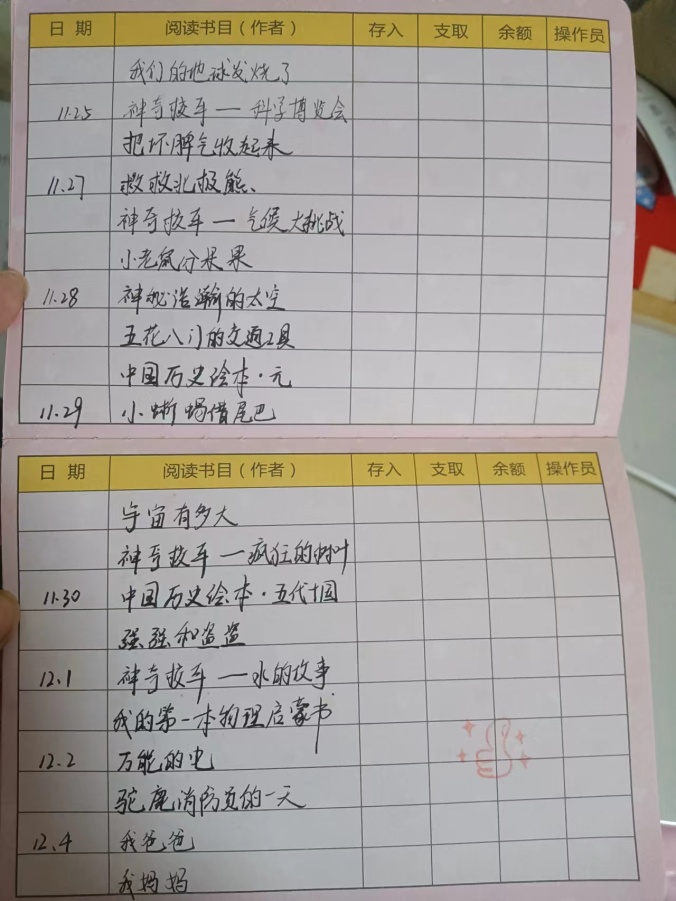 日 期 阅读书目（作者） 存入 支取 余额 操作员
我们的地球发烧了
11.25 神奇校车 — 科学博览会
把坏脾气收起来
11.27 救救北极熊、
神奇校车 — 气候大挑战
小老鼠分果果
11.28 神秘浩瀚的太空
五花八门的交通工具
中国历史绘本·元
11.29 小蜥蜴借尾巴
日 期 阅读书目（作者） 存入 支取 余额 操作员
宇宙有多大
神奇校车 — 疯狂的树叶
11.30 中国历史绘本·五代十国
强强和盗盗
12.1 神奇校车 — 水的故事
我的第一本物理启蒙书
12.2 万能的电
驼鹿消防员的一天
12.4 我爸爸
我妈妈